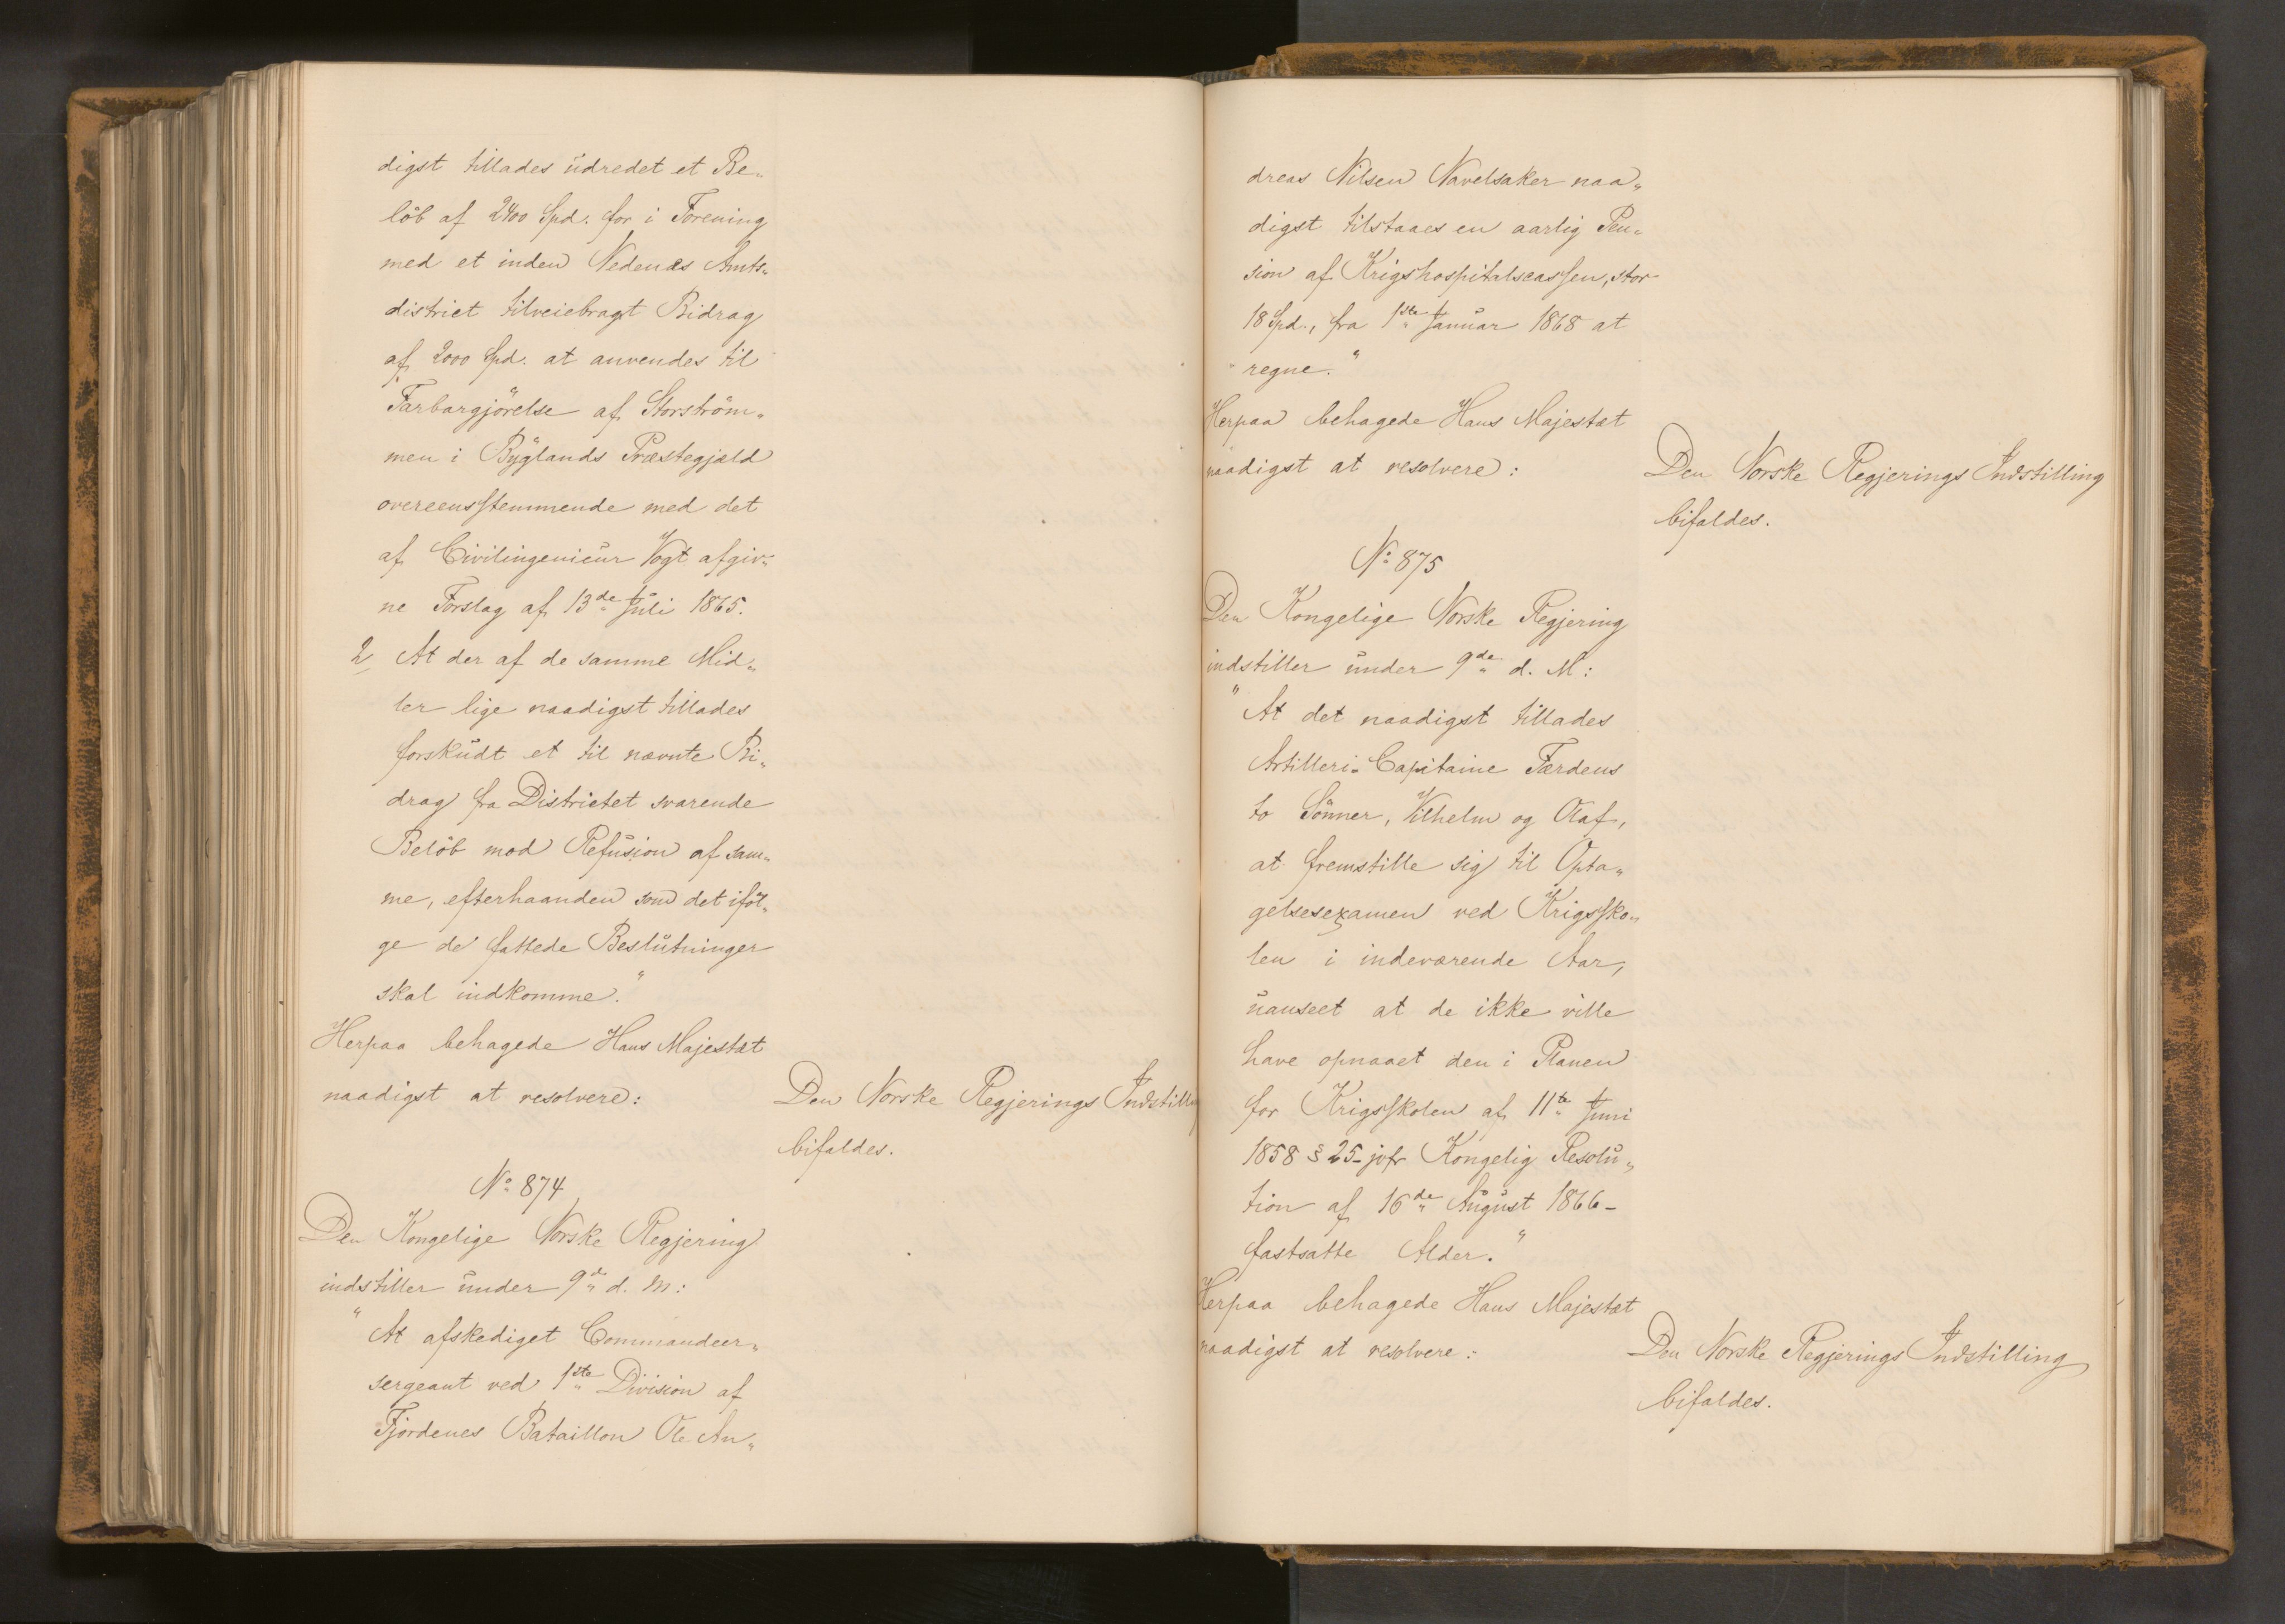 digst tillades udredet et Be„
löb af 2400 Spd. for i Forening
med et inden Nedenæs Amts„
district tilveiebragt Bidrag
af 2000 Spd. at anvendes til
Farbargjörelse af Storström„
men i Byglands Præstegjæld
overeensstemmende med det
af Civilingenieur Vogt afgiv„
ne Forslag af 13de Juli 1865.
2, At der af de samme Mid„
ler lige naadigst tillades
forskudt et til nævnte Bi„
drag fra Districtet svarende
Belöb mod Refusion af sam„
me, efterhaanden som det iföl„
ge de fattede Beslutninger
skal indkomme."
Herpaa behagede Hans Majestæt
naadigst at resolvere:
Den Norske Regjerings Indstilling
bifaldes.
No 874
Den Kongelige Norske Regjering
indstiller under 9de d. M:
"At afskediget Commandeer„
sergeant ved 1ste Division af
Fjordenes Bataillon Ole An„
dreas Nilsen Navelsaker naa„
digst tilstaaes en aarlig Pen„
sion af Krigshospitalscassen, stor
18 Spd., fra 1ste Januar 1868 at
regne."
Herpaa behagede Hans Majestæt
naadigst at resolvere:
Den Norske Regjerings Indstilling
bifaldes.
No 875
Den Kongelige Norske Regjering
indstiller under 9de d. M:
"At det naadigst tillades
Artilleri-Capitaine Færdens
to Sönner, Vilhelm og Olaf,
at fremstille sig til Opta„
gelsesexamen ved Krigssko„
len i indeværende Aar,
uanseet at de ikke ville
have opnaaet den i Planen
for Krigsskolen af 11te Juni
1858 § 25 - jvfr Kongelig Resolu„
tion af 16de August 1866 -
fastsatte Alder."
Herpaa behagede Hans Majestæt
naadigst at resolvere:
Den Norske Regjerings Indstilling
bifaldes.